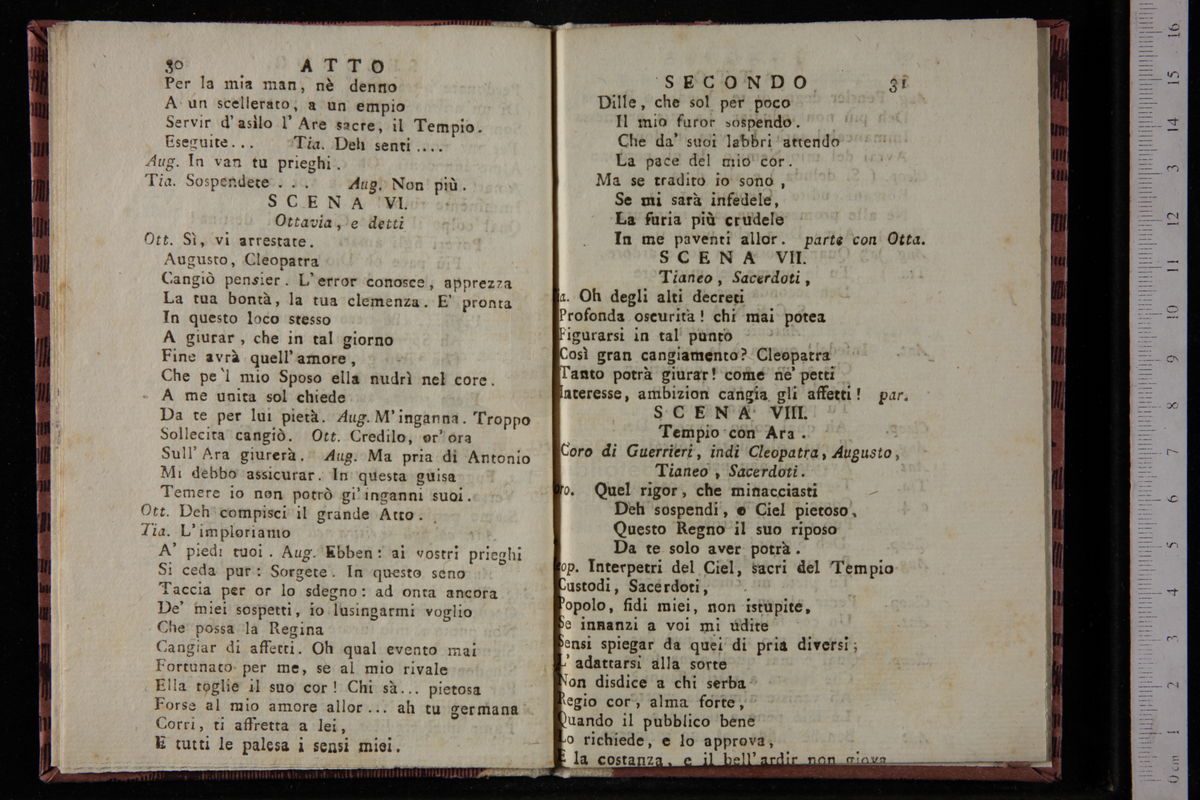 30 ATTO
Per la mia man, nè denno
A un scellerato, a un empio
Servir d'asìlo l'Are sacre, il Tempio.
Eseguite... Tia. Deh senti....
Aug. In van tu prieghi.
Tia. Sospendete... Aug. Non più.
SCENA VI.
Ottavia, e detti
Ott. Sì, vi arrestate.
Augusto, Cleopatra
Cangiò pensier. L'error conosce, apprezza
La tua bontà, la tua clemenza. E' pronta
In questo loco stesso
A giurar, che in tal giorno
Fine avrà quell'amore,
Che pe'l mio Sposo ella nudrì nel core.
A me unita sol chiede
Da te per lui pietà. Aug. M'inganna. Troppo
Sollecita cangiò. Ott. Credilo, or'ora
Sull'Ara giurerà. Aug. Ma pria di Antonio
Mi debbo assicurar. In questa guisa
Temere io non potrò gi'inganni suoi.
Ott. Deh compisci il grande Atto.
Tia. L'imploriamo
A' piedi tuoi. Aug. Ebben: ai vostri prieghi
Si ceda pur: Sorgete. In questo seno
Taccia per or lo sdegno: ad onta ancora
De' miei sospetti, io lusingarmi voglio
Che possa la Regina
Cangiar di affetti. Oh qual evento mai
Fortunato per me, se al mio rivale
Ella toglie il suo cor! Chi sà... pietosa
Forse al mio amore allor... ah tu germana
Corri, ti affretta a lei,
E tutti le palesa i sensi miei.
SECONDO 31
Dille, che sol per poco
Il mio furor sospendo.
Che da' suoi labbri attendo
La pace del mio cor.
Ma se tradito io sono,
Se mi sarà infedele,
La furia più crudele
In me paventi allor. parte con Otta.
SCENA VII.
Tianeo, Sacerdoti,
ia. Oh degli alti decreti
Profonda oscurità! chi mai potea
Figurarsi in tal punto
Così gran cangiamento? Cleopatra
Tanto potrà giurar! come ne' petti
Interesse, ambizion cangia gli affetti! par.
SCENA VIII.
Tempio con Ara.
Coro di Guerrieri, indi Cleopatra, Augusto,
Tianeo, Sacerdoti.
oro. Quel rigor, che minacciasti
Deh sospendi, o Ciel pietoso,
Questo Regno il suo riposo
Da te solo aver potrà.
eop. Interpetri del Ciel, sacri del Tempio
Custodi, Sacerdoti,
Popolo, fidi miei, non istupite,
Se innanzi a voi mi udite
Sensi spiegar da quei di pria diversi;
L'adattarsi alla sorte
Non disdice a chi serba
Regio cor, alma forte,
Quando il pubblico bene
Lo richiede, e lo approva,
E la costanza, e il bell'ardir non giova
0 cm 1 2 3 4 5 6 7 8 9 10 11 12 13 14 15 16